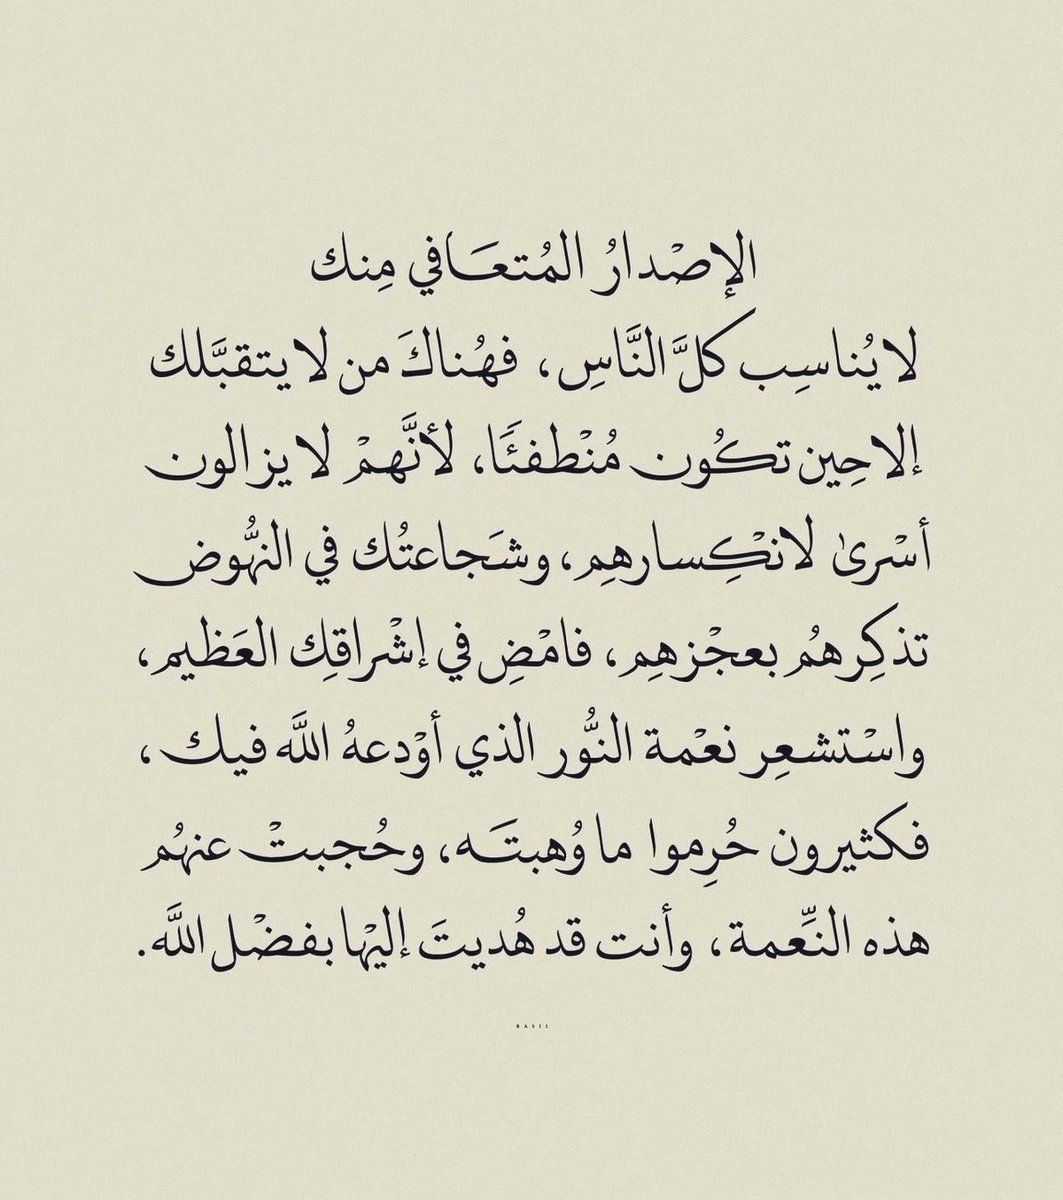 الإصْدارُ المُتعَافي مِنك
لا يُناسِب كلَّ النَّاسِ، فهُناكَ من لا يتقبَّلك
إلا حِين تكُون مُنْطفئًا، لأنَّهمْ لا يزالون
أسْرىٰ لانْكِسارهِم، وشَجاعتُك في النهُّوض
تذكِرهُم بعجْزهِم، فامْضِ في إشْراقِك العَظيم،
واسْتشعِر نعْمة النُّور الذي أوْدعهُ اللَّه فيك،
فكثيرون حُرِموا ما وُهبتَه، وحُجبتْ عنهُم
هذه النِّعمة، وأنت قد هُديتَ إليْها بفضْل اللَّه.
BASIL